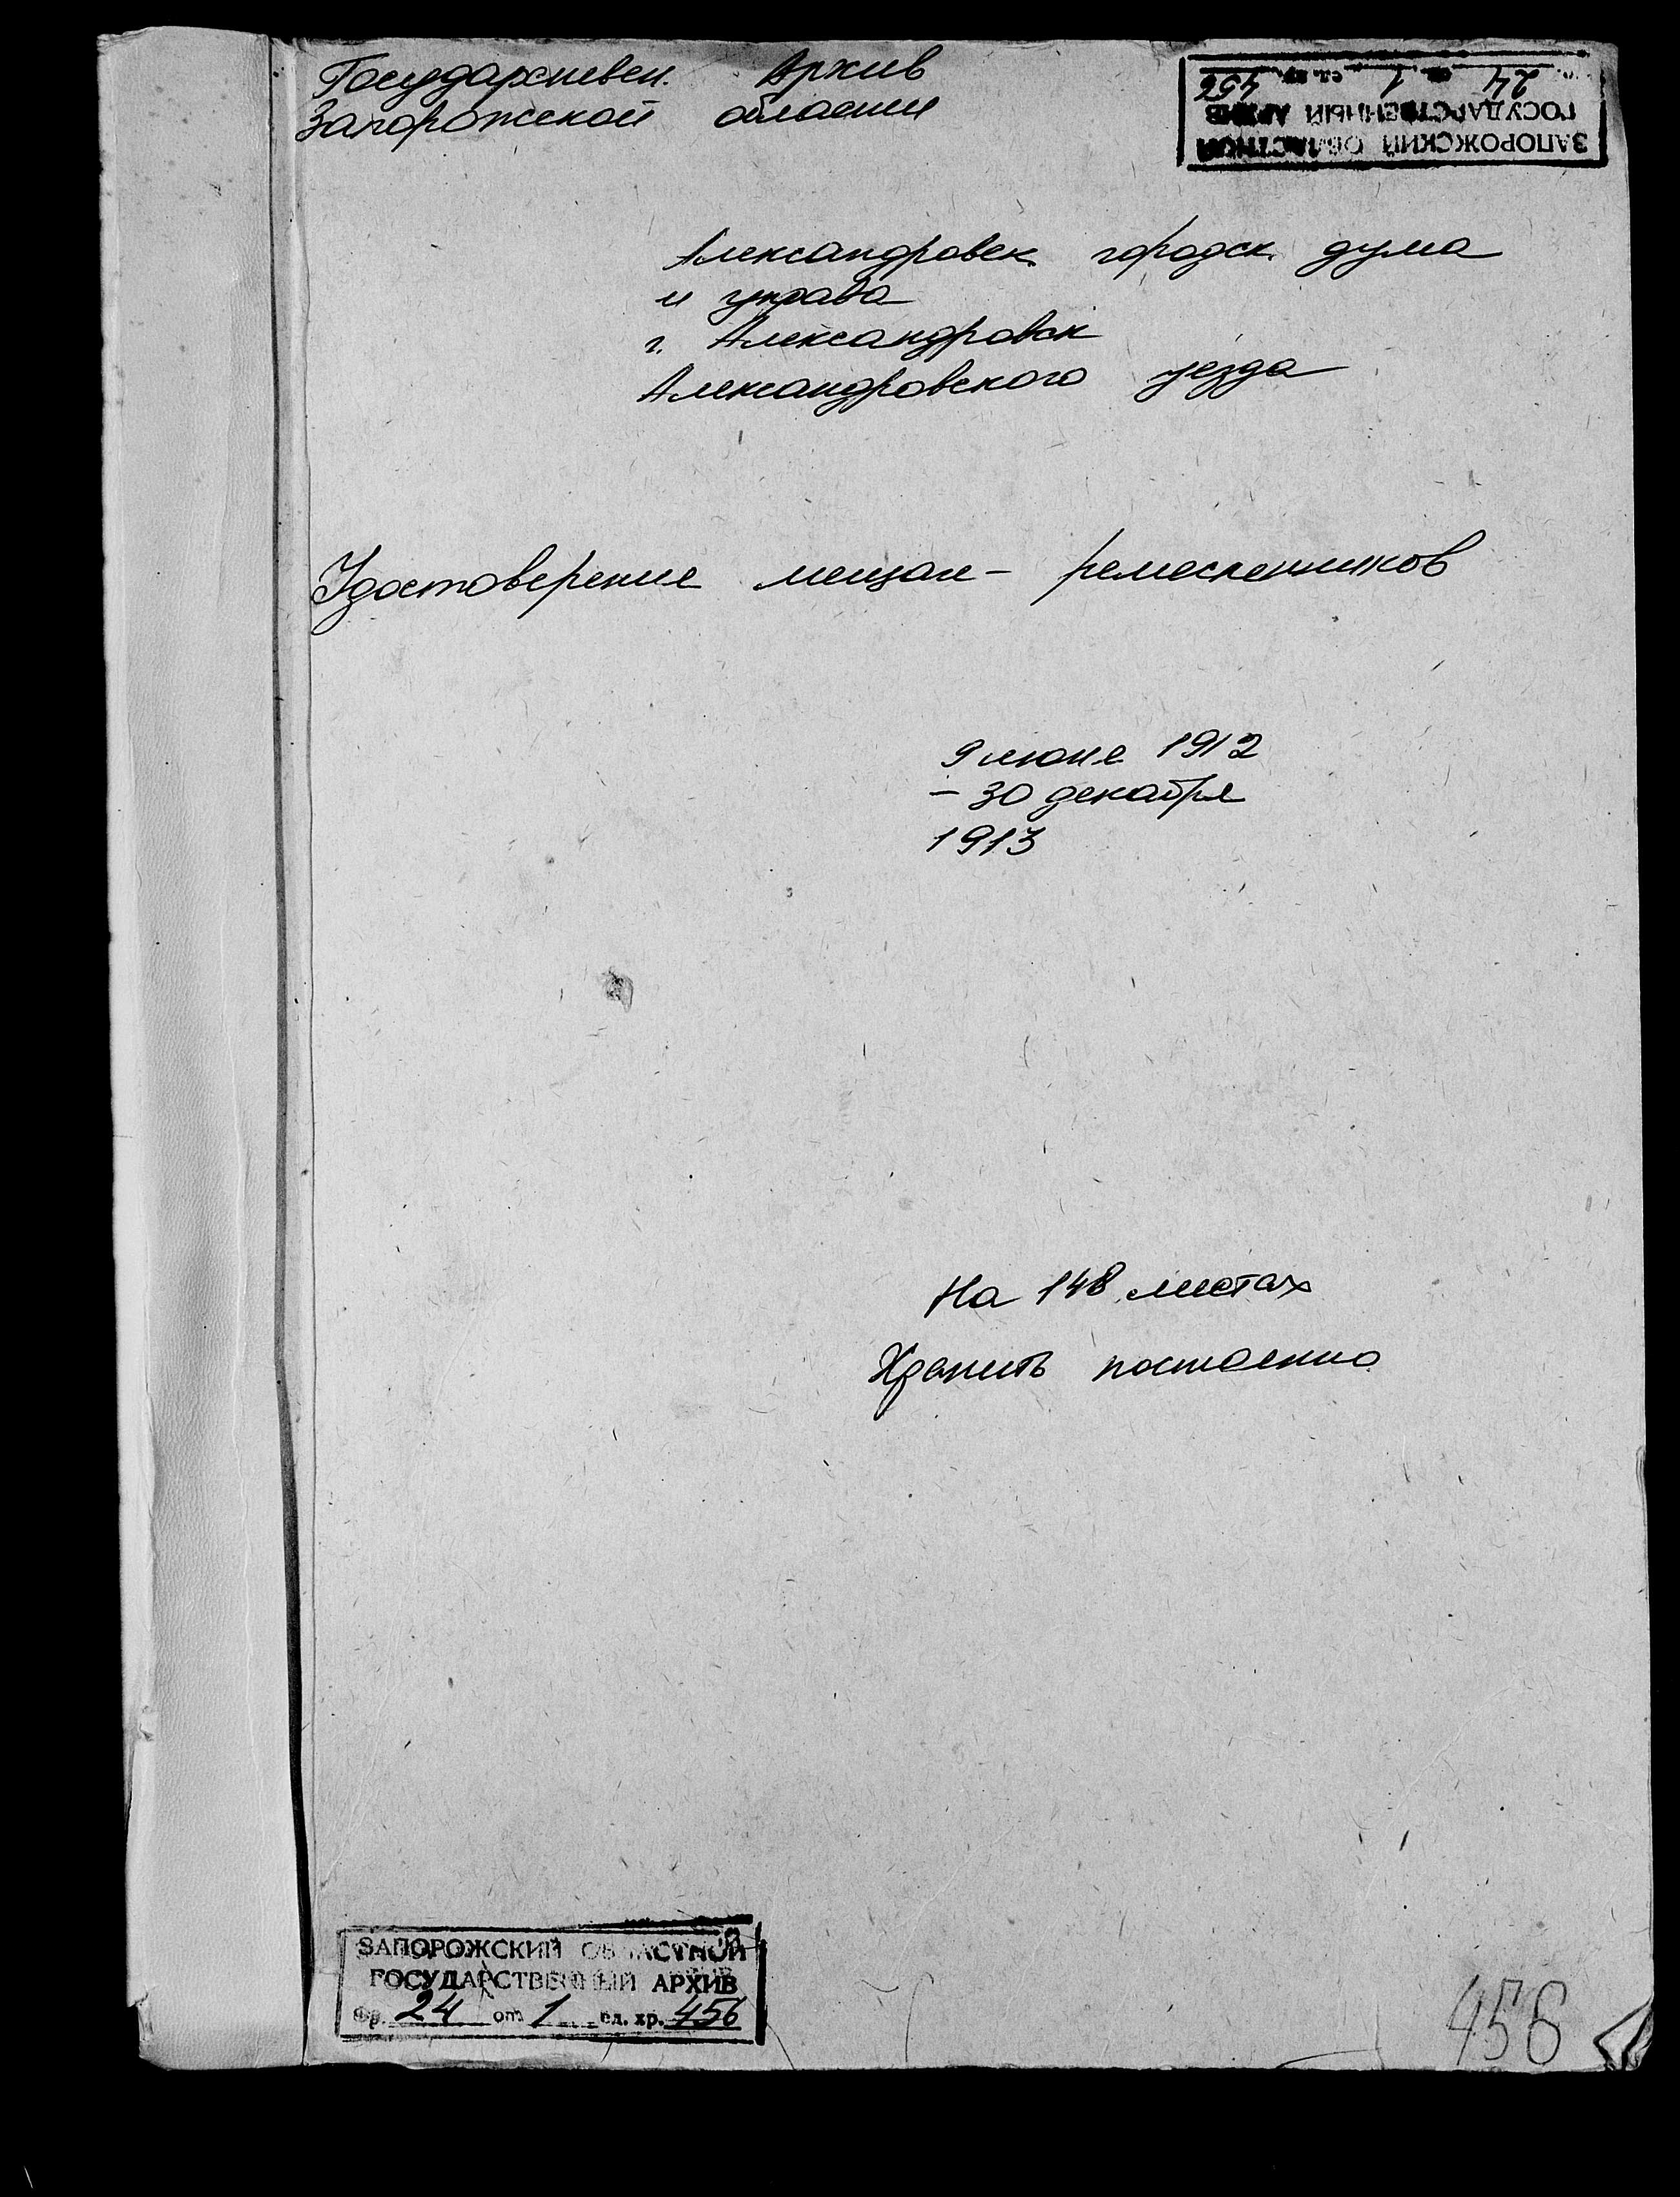 Государствен. Архив
Запорожской области
ЗАПОРОЖСКИЙ ОБЛАСТНОЙ
ГОСУДАРСТВЕННЫЙ АРХИВ
24 1 ед. хр. 456
Александровск. городск. дума
и управа
г. Александровск
Александровского уезда
Удостоверение мещан- ремесленников
9 июня 1912
- 30 декабря
1913
На 148 листах
Хранить постоянно
ЗАПОРОЖСКИЙ ОБЛАСТНОЙ
ГОСУДАРСТВЕННЫЙ АРХИВ
Фр. 24 оп 1 ед. хр. 456
456